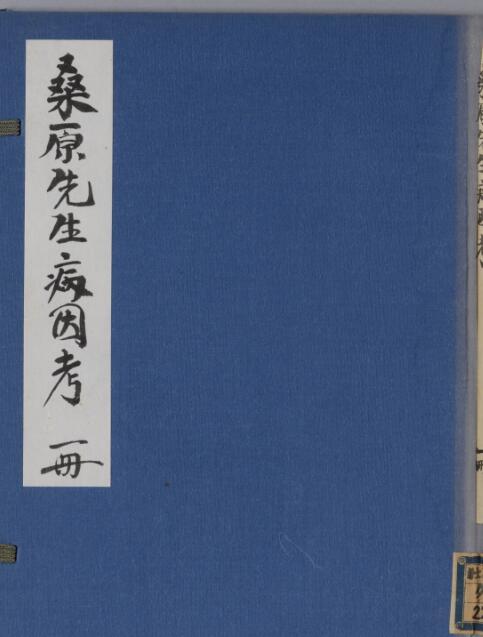 桑原先生病因考 一冊